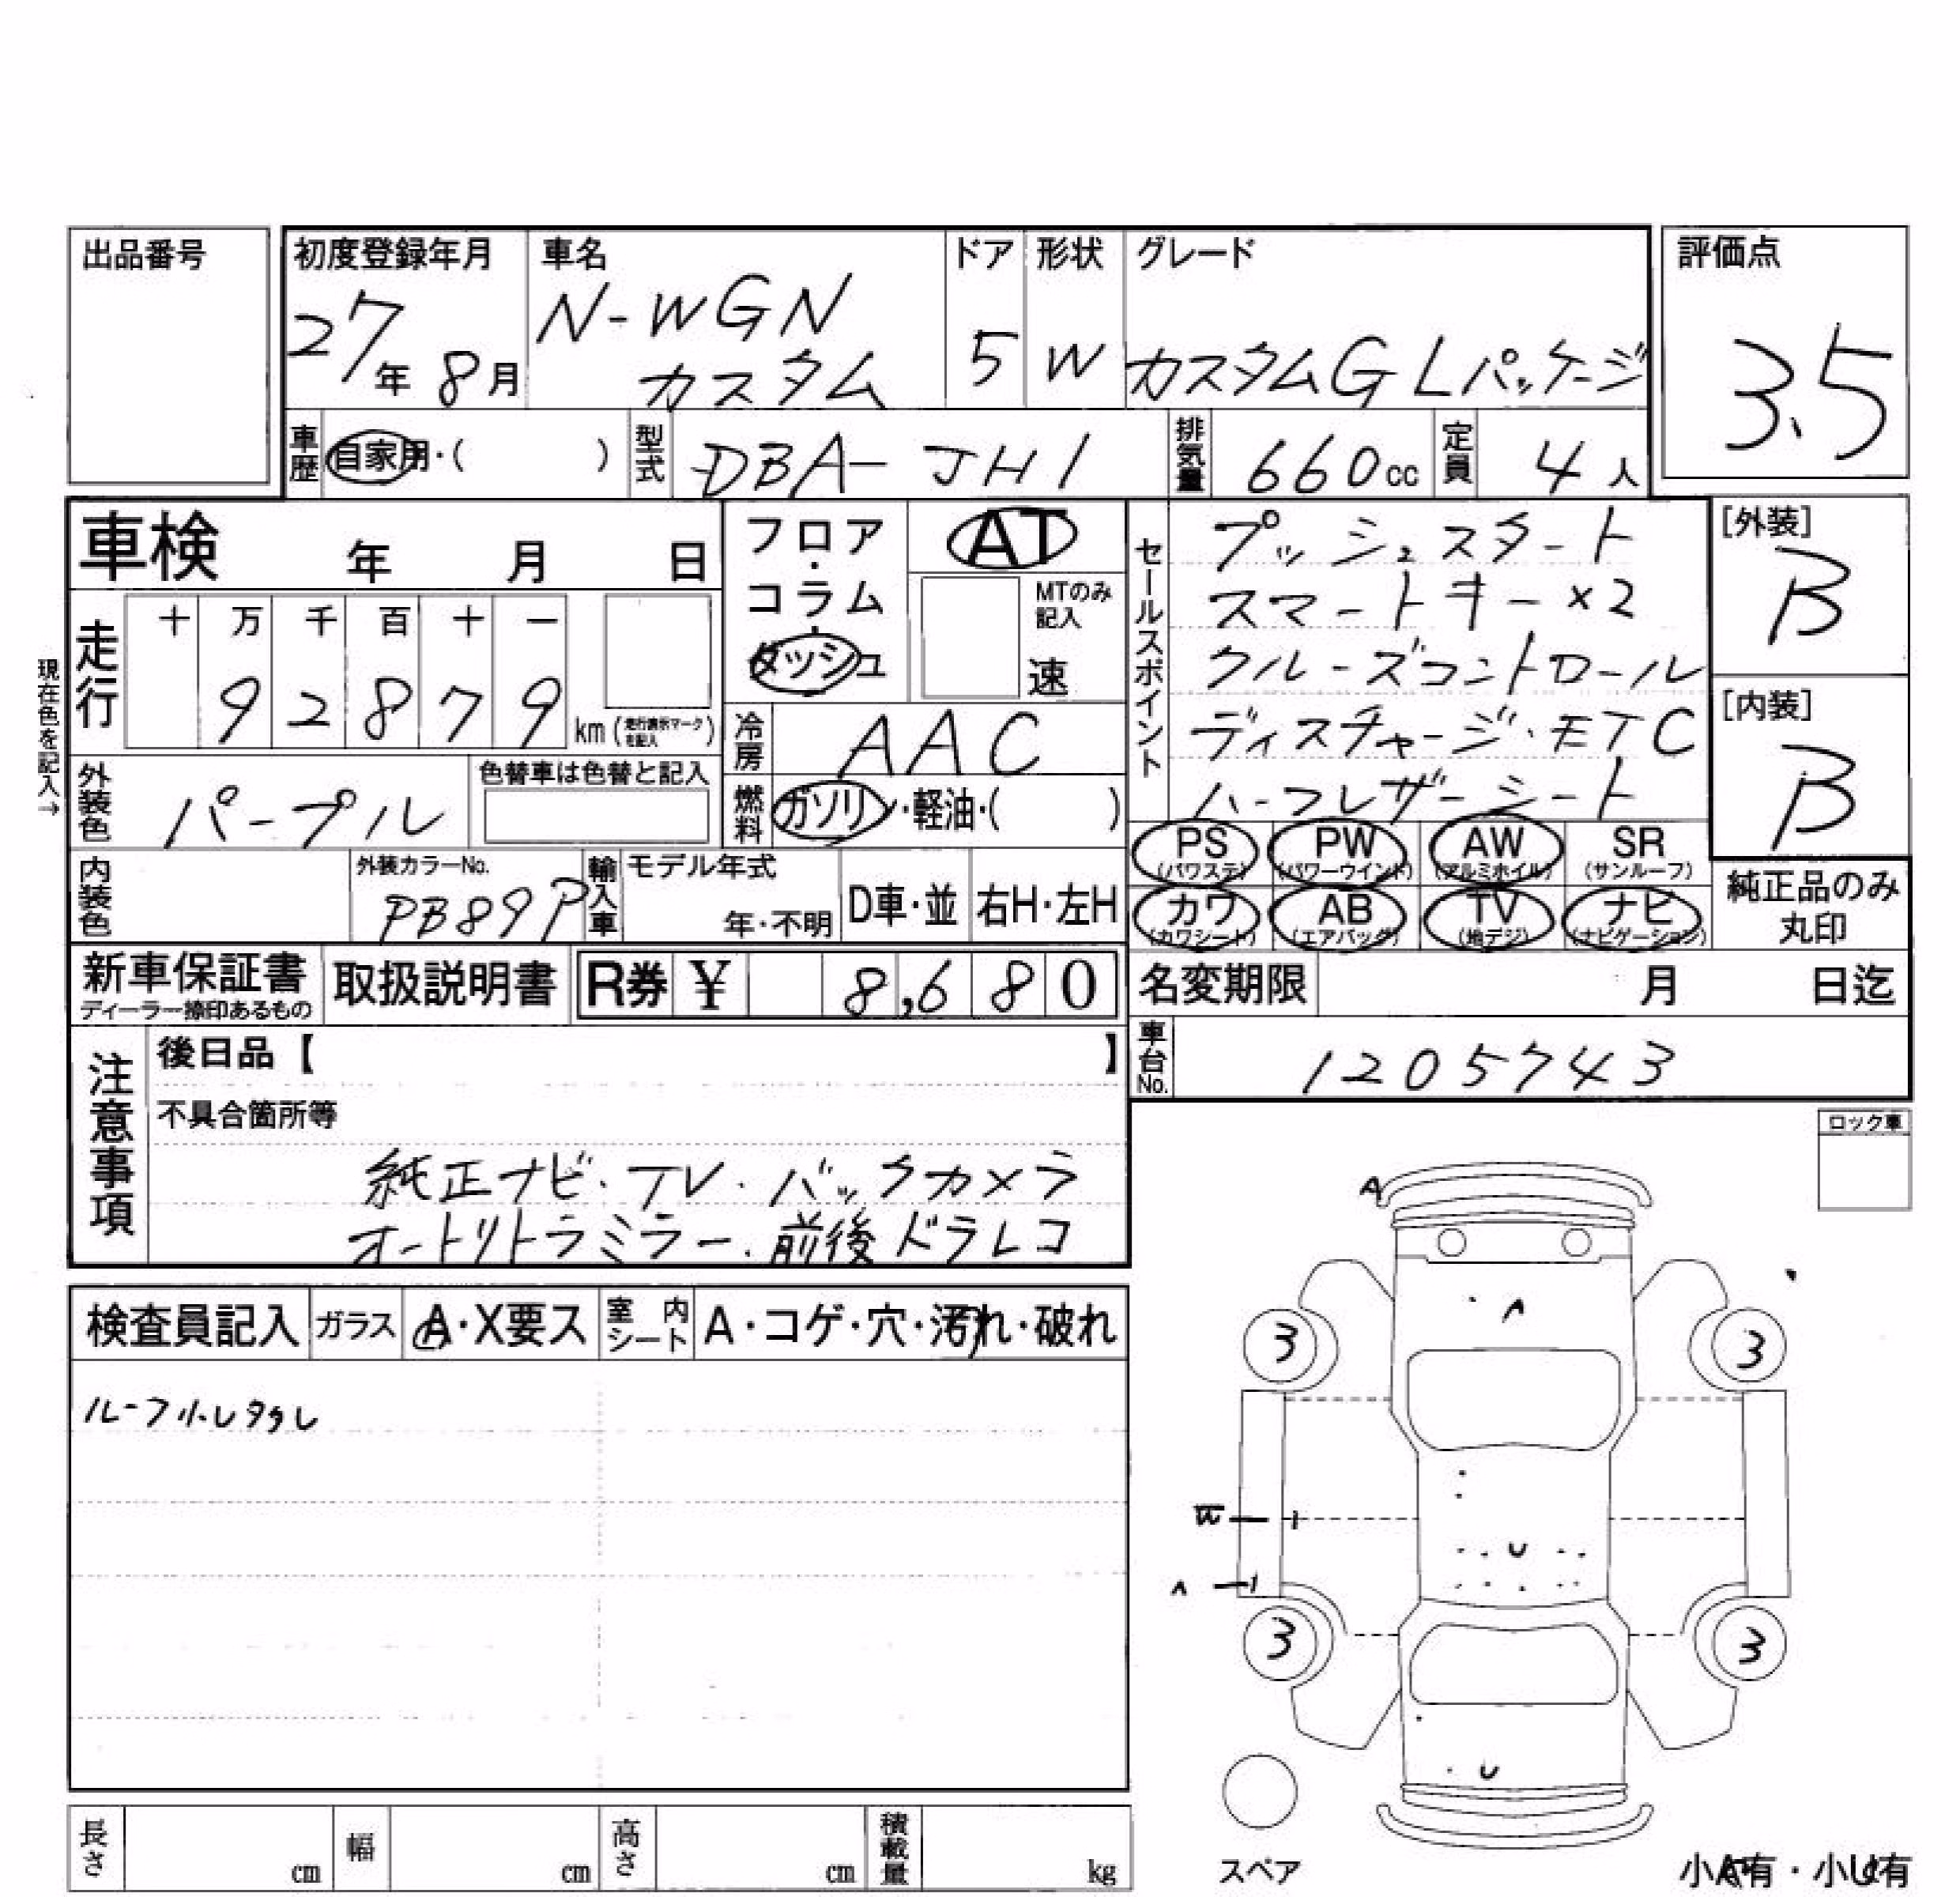 出品番号
初度登録年月 27年 8月
車名 N-WGN カスタム
ドア 5
形状 W
グレード カスタムG Lパッケージ
評価点 3.5
車歴 自家用・( )
型式 DBA-JH1
排気量 660cc
定員 4人
車検 年 月 日
フロア・コラム・ダッシュ
AT
MTのみ記入
速
セールスポイント
プッシュスタート
スマートキー×2
クルーズコントロール
ディスチャージ・ETC
ハーフレザーシート
[外装] B
[内装] B
現在色を記入→
走行 十 万 千 百 十 一
9 2 8 7 9 km (走行表示マークを記入)
冷房 AAC
外装色 パープル
色替車は色替と記入
燃料 ガソリン・軽油・( )
PS (パワステ) PW (パワーウインド) AW (アルミホイル) SR (サンルーフ)
カワ (カワシート) AB (エアバッグ) TV (地デジ) ナビ (ナビゲーション)
純正品のみ丸印
内装色
外装カラーNo. PB89P
輸入車 モデル年式 年・不明 D車・並 右H・左H
新車保証書 ディーラー捺印あるもの
取扱説明書
R券 ¥ 8,680
名変期限 月 日迄
車台No. 1205743
注意事項
後日品【 】
不具合箇所等
純正ナビ・TV・バックカメラ
オートリトラミラー・前後ドラレコ
ロック車
検査員記入 ガラス A・X要ス 室内シート A・コゲ・穴・汚れ・破れ
A
A
3 3
U
A
3 3
U
スペア
長さ cm 幅 cm 高さ cm 積載量 kg
小A有・小U有